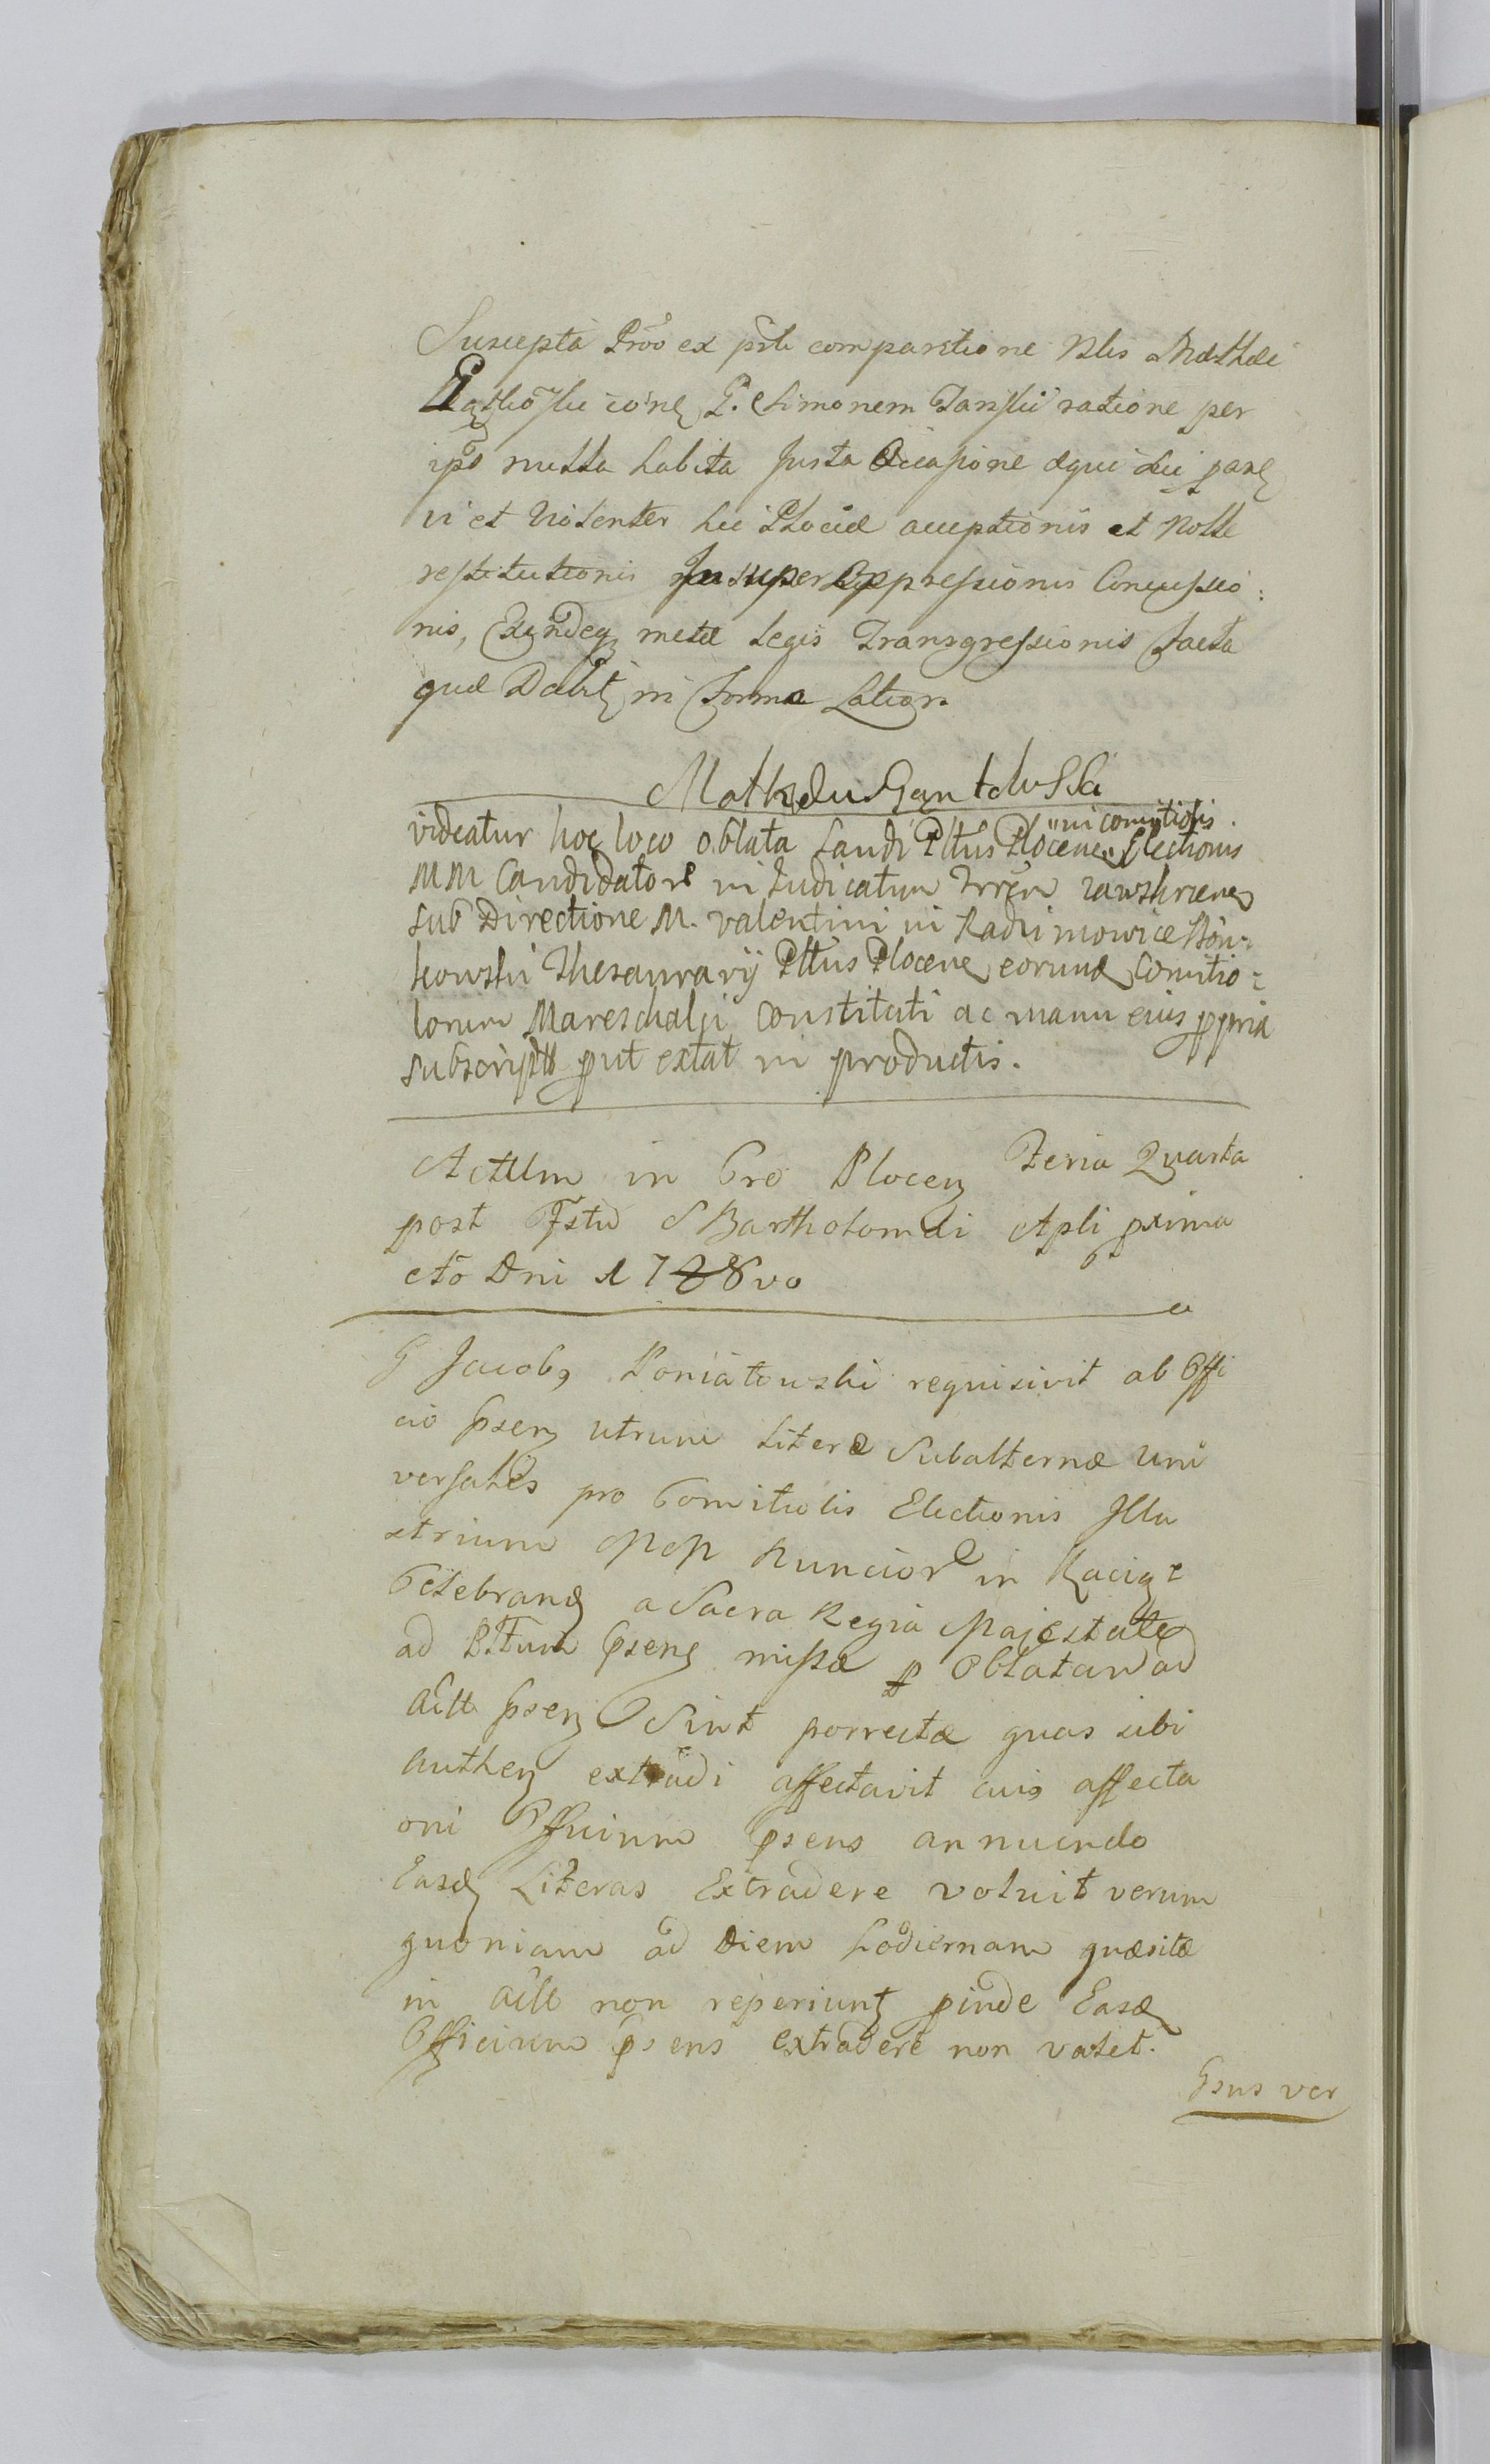 Suscepta Pro͠o ex prti comparitione Nlis Mathæi
co͠ne G. Simonem Janski ratione per
ip͠s nulla habita Justa Occasione equi sui
vi et Violenter hic Plociæ acceptionis et Nolle
restitutionis Insuper Oppressionis Concussio:
nis, metæ Legis Transgressionis facta
quæ Dabit in forma Latior.
videatur hoc loco oblata Laudi Plttus Plocen "in comitiolis
Electionis
MM Candidator in Judicatum Trrēn zawskrzen
sub Directione M. Valentini in Radzimowice Bōn-
kowski Thesaurarij Plttus Plocen eorund Comitio:
lorum Mareschalji constituti ac manu eius ppria
subscriptu put extat in productis.
Actum in Cro Plocen Feria Quarta
post Fstu S Bartholomæi Apli prima
Ao Dni 1788vo
G Jacob9 Poniatowski requisivit ab Offi
cio psen utrum Literæ Subalternæ Uni
versales pro Comitiolis Electionis Illu
strium MM Nuncior in Raciąz
Celebrand a Sacra Regia Majestate
ad Pltum psens missæ p Oblatam ad
Actt psen Sint porrectæ quas sibi
Authen extradi affectavit cuis affecta
oni Officium psens annuendo
Easd Literas Extradere voluit verum
quoniam ad Diem hodiernam quæsitæ
in Actt non reperiunt pinde Easd
Officium psens extradere non valet.
Gsus ver